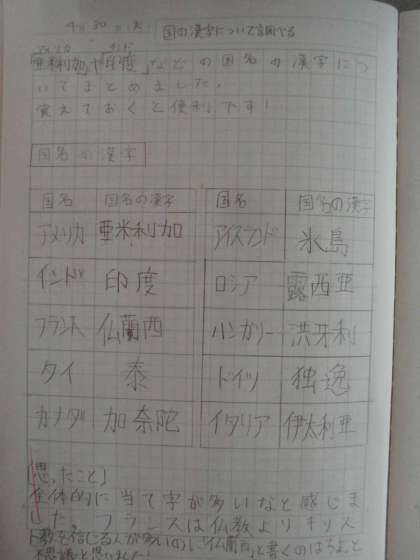 4月30日(火) 国の漢字について調べる
アメリカ インド
亜米利加や印度などの国名の漢字につ
いてまとめました。
覚えておくと便利です！
国名の漢字
国名 国名の漢字 国名 国名の漢字
アメリカ 亜米利加 アイスランド 氷島
インド 印度 ロシア 露西亜
フランス 仏蘭西 ハンガリー 洪牙利
タイ 泰 ドイツ 独逸
カナダ 加奈陀 イタリア 伊太利亜
[思ったこと]
全体的に当て字が多いなと感じま
した。フランスは仏教よりキリス
ト教を信じる人が多いのに「仏蘭西」と書くのはちょっと
不思議と思いました。